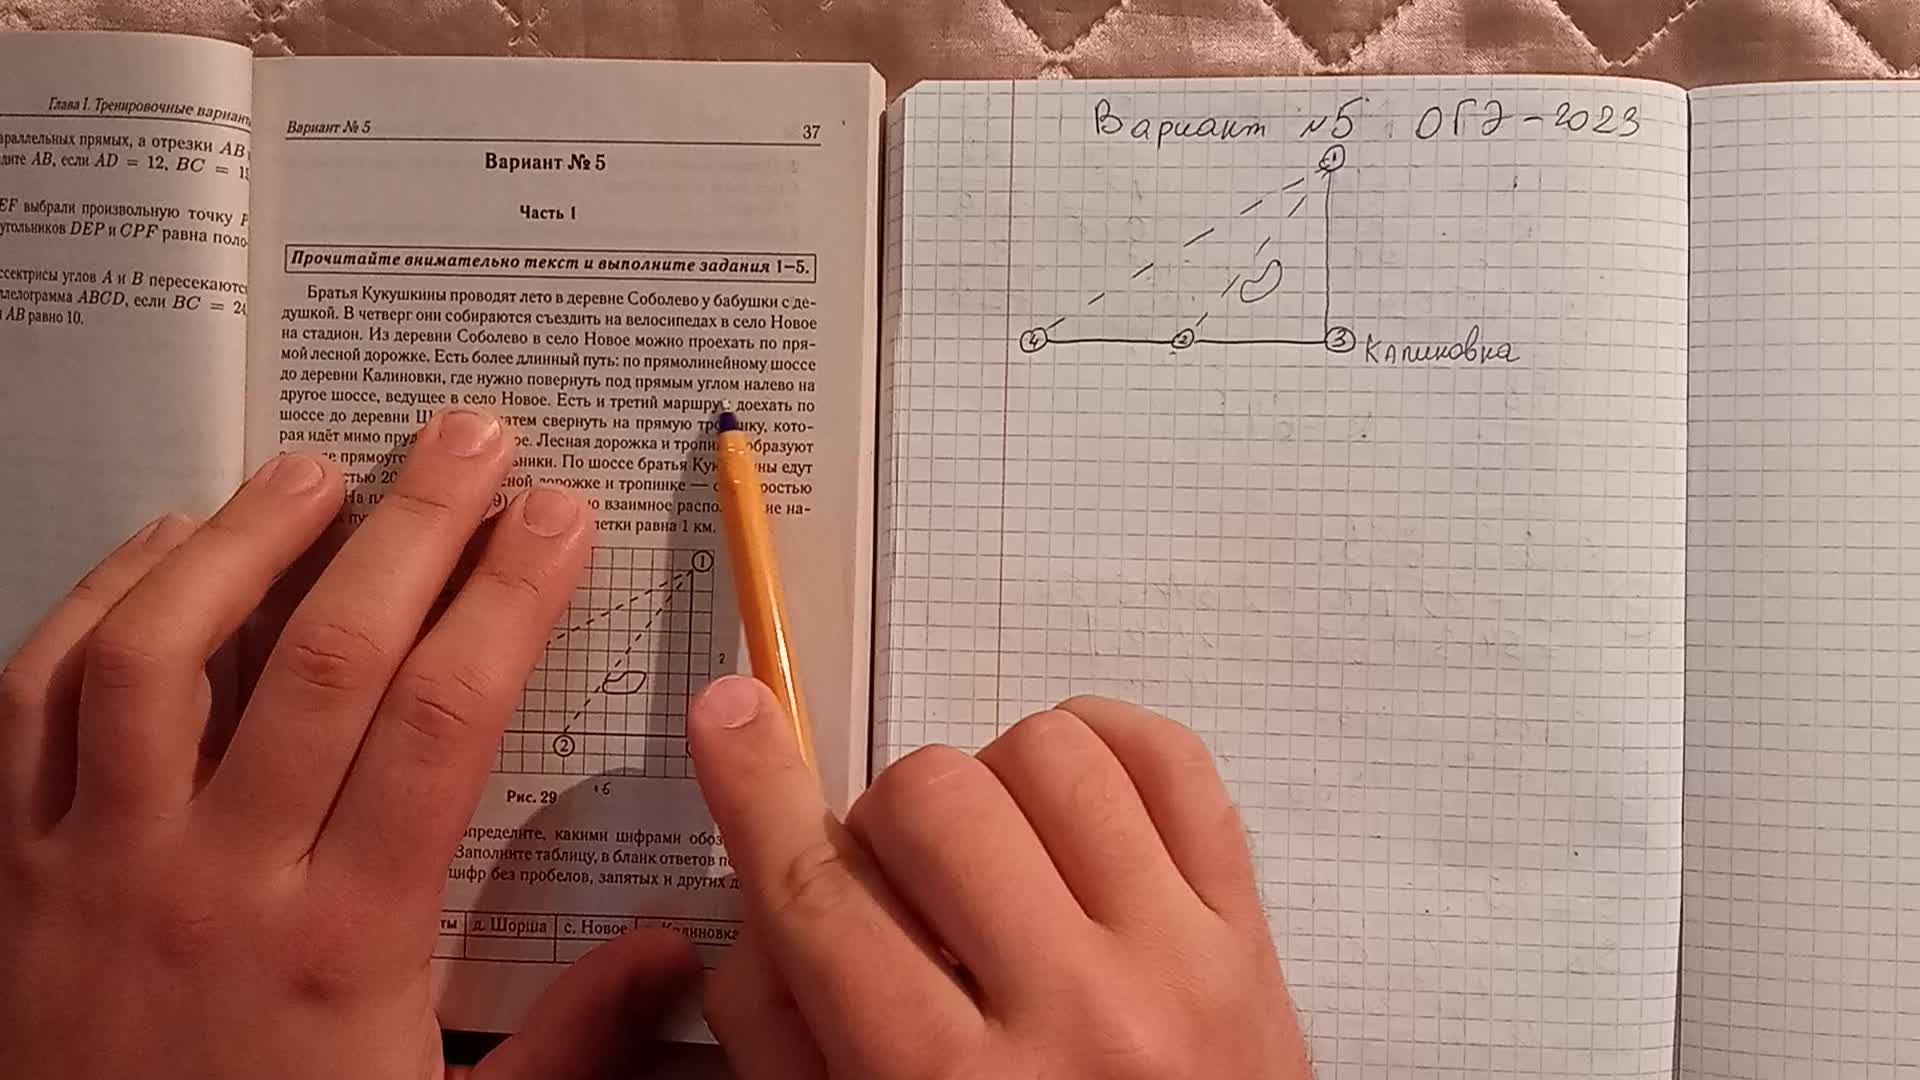 Глава I. Тренировочные вариант
араллельных прямых, а отрезки AB
дите AB, если AD = 12, BC = 1
EF выбрали произвольную точку P
угольников DEP и CPF равна поло-
ссектрисы углов A и B пересекаются
ллелограмма ABCD, если BC = 24
AB равно 10.
Вариант № 5
37
Вариант № 5
Часть 1
Прочитайте внимательно текст и выполните задания 1–5.
Братья Кукушкины проводят лето в деревне Соболево у бабушки с де-
душкой. В четверг они собираются съездить на велосипедах в село Новое
на стадион. Из деревни Соболево в село Новое можно проехать по пря-
мой лесной дорожке. Есть более длинный путь: по прямолинейному шоссе
до деревни Калиновки, где нужно повернуть под прямым углом налево на
другое шоссе, ведущее в село Новое. Есть и третий маршрут: доехать по
шоссе до деревни Ш атем свернуть на прямую тро инку, кото-
рая идёт мимо пруд ое. Лесная дорожка и тропин образуют
прямоуг ьники. По шоссе братья Кук ны едут
стью 20 сной дорожке и тропинке — с ростью
На пл о взаимное распо ие на-
летки равна 1 км.
1
2
2
Рис. 29
определите, какими цифрами обоз
Заполните таблицу, в бланк ответов п
цифр без пробелов, запятых и других
ты д. Шорша с. Новое Калиновка
Вариант №5 ОГЭ-2023
1
4 2 3 Калиновка